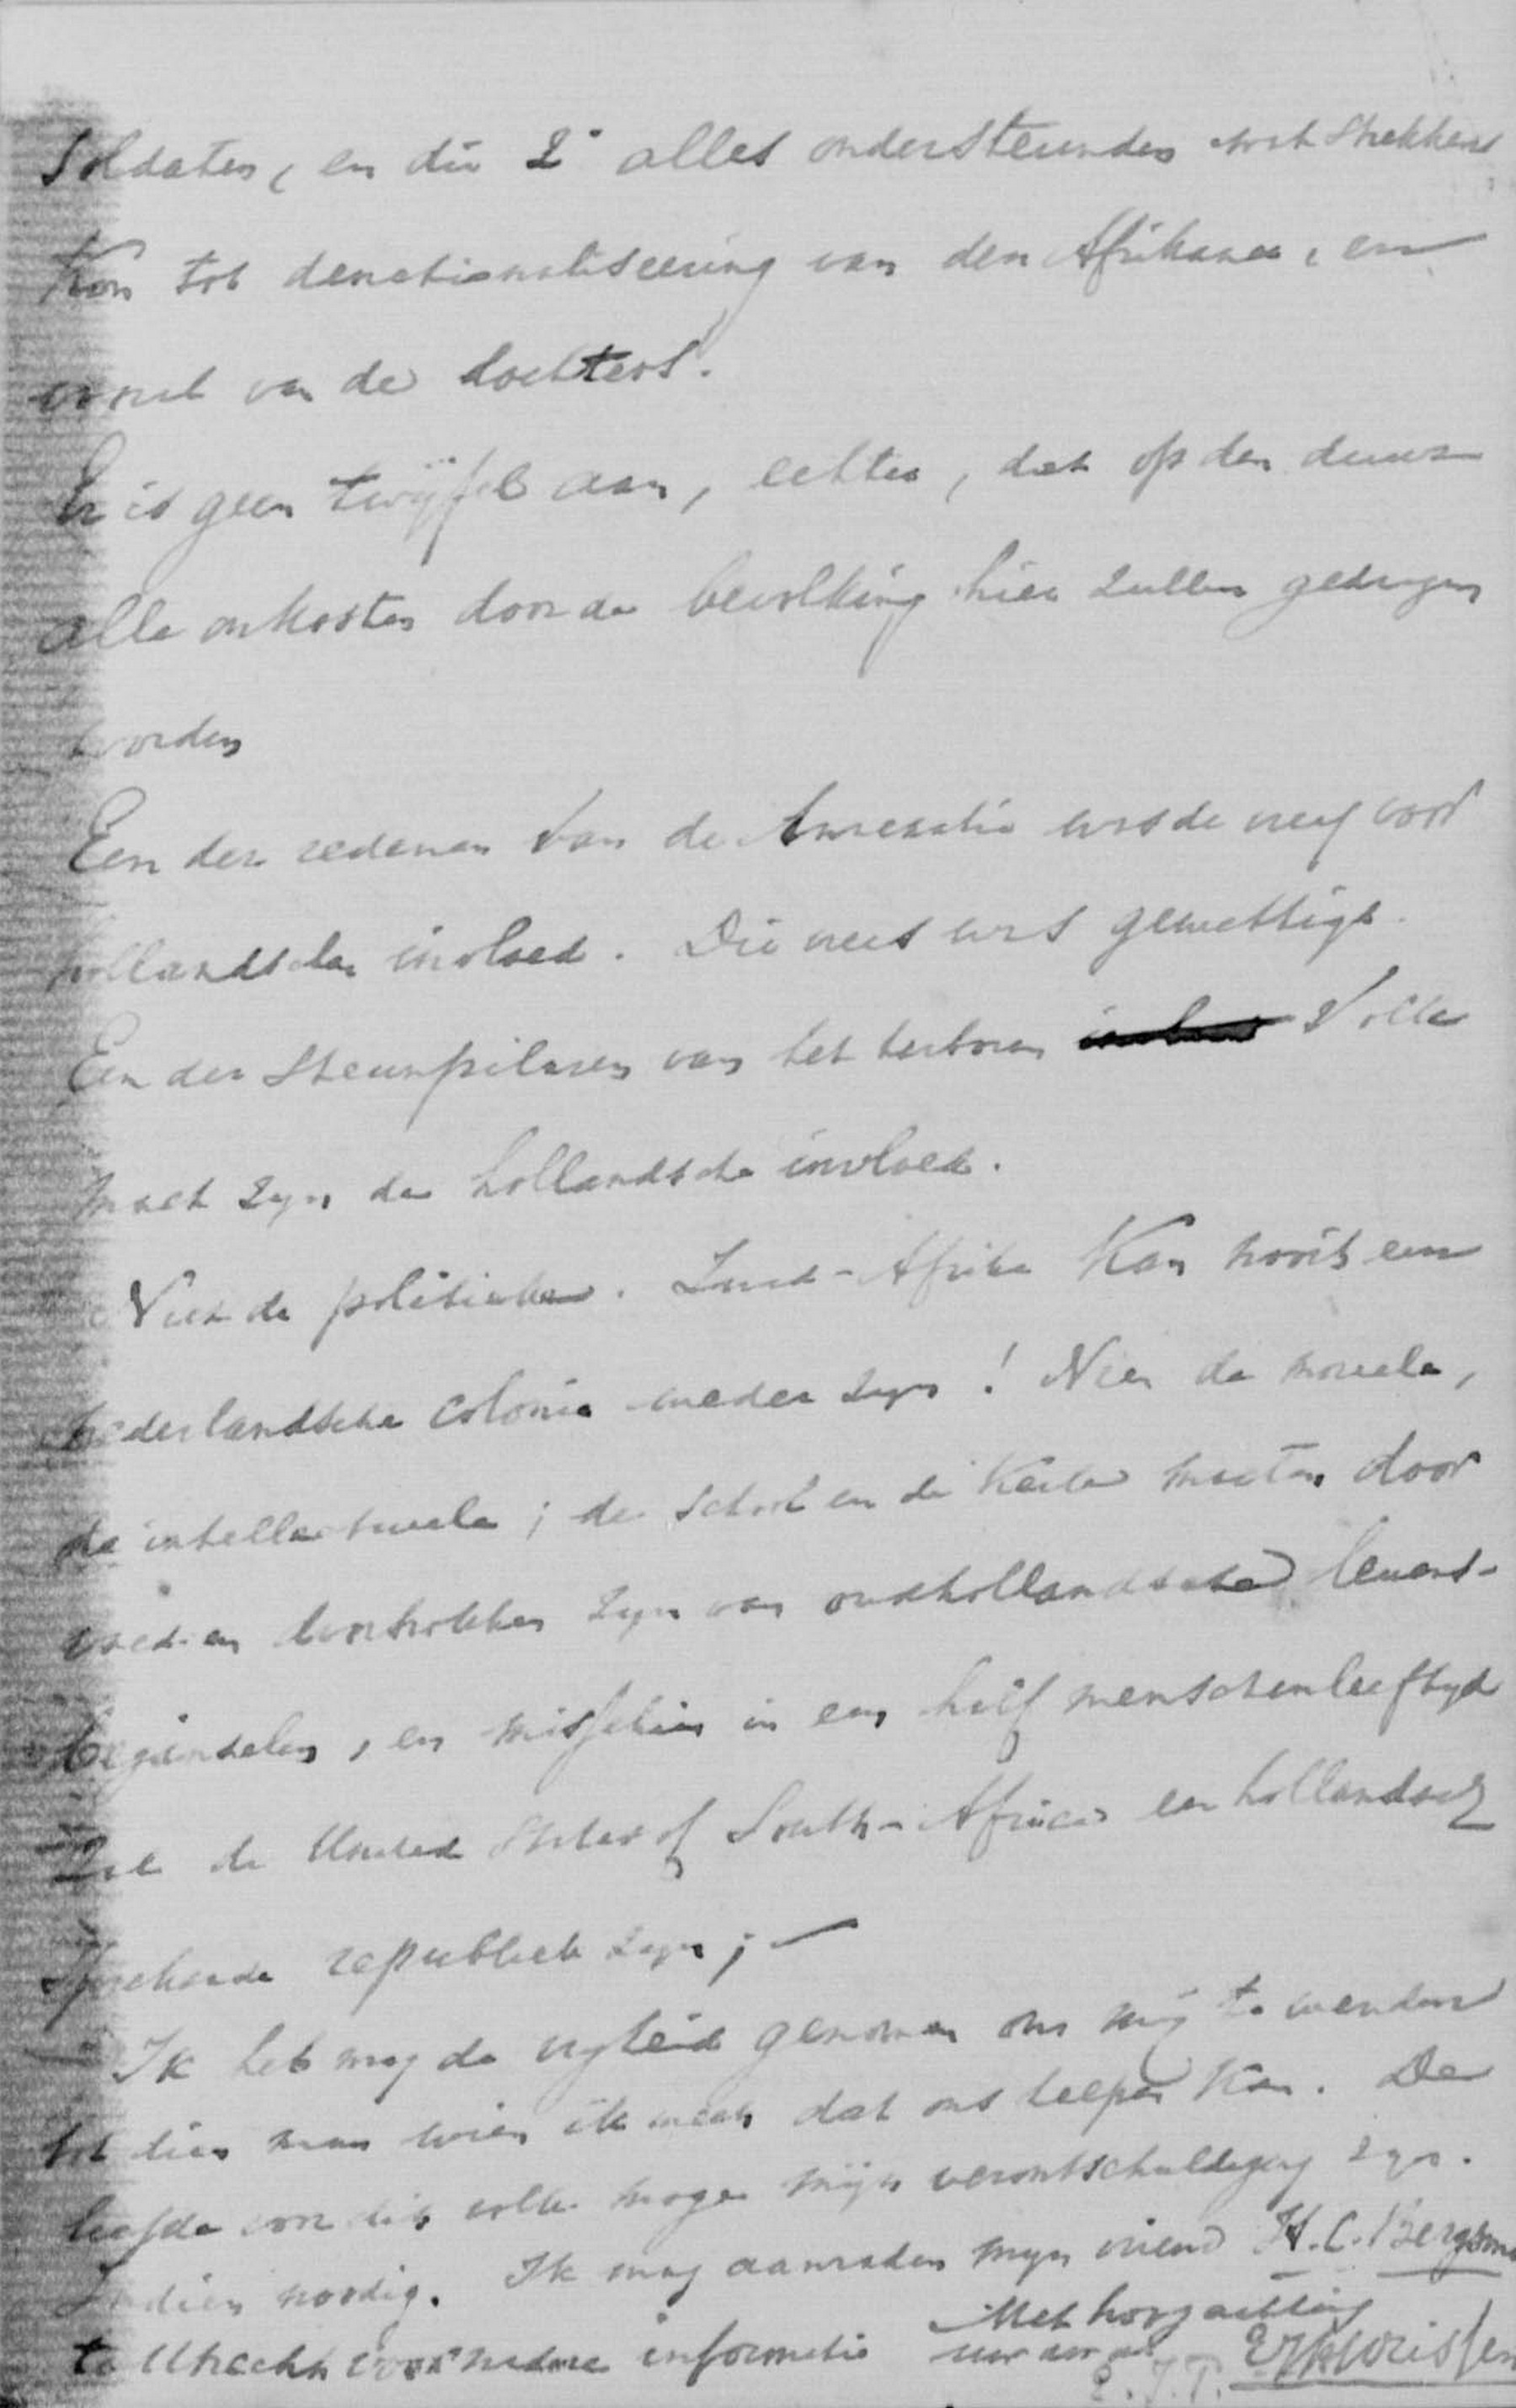 Soldaten, en die 2° alles ondersteunden wat strekken
Kon tot denationaliseering van den Afrikaner, en
vooral van de dochters.
Er is geen twijfel aan, echter, dat op den duur
alle onkosten door de bevolking hier zullen gedragen
worden
Een der redenen van de Annexatie was de vrees voor
hollandschen invloed. Die vrees was gewettigd.
Een der Steunpilaren van het herboren Volk
moet zyn de hollandsche invloed.
Niet de politieke. Zuid-Afrika Kan nooit een
Nederlandsche Colonie weder zyn! Neen de moreele,
de intellectueele; de School en de Kerk moeten door
voed en doortrokken zyn van oudhollandsche levens-
beginselen, en misschien in een half menschenleeftyd
Zal de United States of South-Africa een hollandsch
Sprekende republiek zyn; —
Ik heb my de vryheid genomen om mij te wenden
tot hier man wien ik meen dat ons helpen Kan. De
liefde voor dit volk moge mijn verontschuldiging zyn.
Indien noodig. Ik mag aanraden myn vriend H. C. Bergsma
te Utrecht voor nadere informatie Met hoogachting
E. J. T.